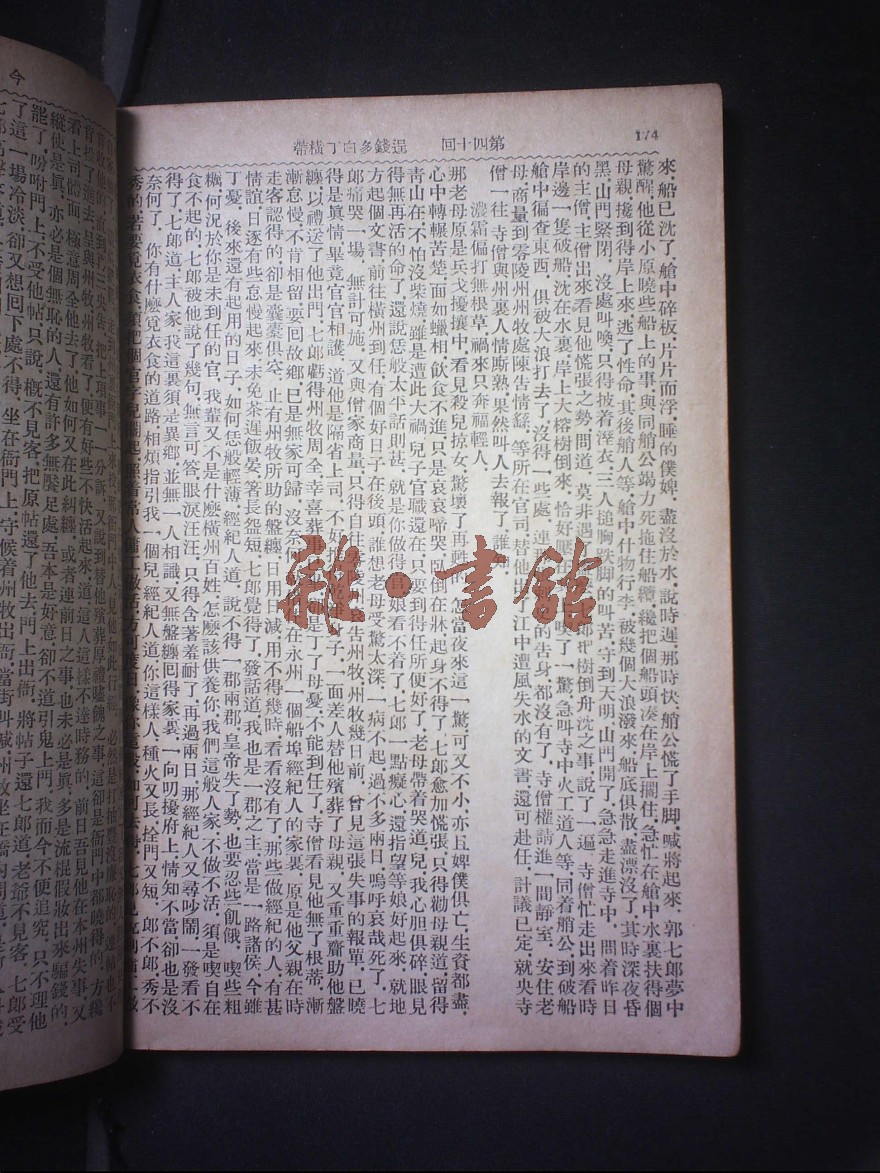 174
第四十回　逞錢多白丁橫帶
來，船已沈了，艙中碎板，片片而浮，睡的僕婢，盡沒於水，說時遲，那時快，艄公慌了手脚，喊將起來，郭七郎夢中
驚醒，他從小原曉些船上的事，與同艄公竭力死拖住船纜，纔把個船頭湊在岸上擱住，急忙在艙中水裏扶得個
母親，攙到得岸上來，逃了性命，其後艄人等，艙中什物行李，被幾個大浪潑來，船底俱散，盡漂沒了，其時深夜昏
黑，山門緊閉，沒處叫喚，只得披着溼衣，三人搥胸跌脚的叫苦，守到天明，山門開了，急急走進寺中，問着昨日
的主僧，主僧出來看見他慌張之勢，問道，莫非遇 七郎把樹倒舟沈之事，說了一遍，寺僧忙走出來看時
岸邊一隻破船，沈在水裏，岸上大榕樹倒來，恰好壓在 喫了一驚，急叫寺中火工道人等，同着艄公，到破船
艙中徧查東西，俱被大浪打去了，沒得一些處，連那 的告身，都沒有了，寺僧權請進一間靜室，安住老
母，商量到零陵州州牧處陳告情繇，等所在官司，替他 了江中遭風失水的文書，還可赴任，計議已定，就央寺
僧一往，寺僧與州裏人情厮熟，果然叫人去報了，誰知
濃霜偏打無根草，禍來只奔福輕人，
那老母原是兵戈擾攘中，看見殺兒掠女，驚壞了再甦的，怎當夜來這一驚，可又不小，亦且婢僕俱亡，生資都盡，
心中轉輾苦楚，面如蠟楂，飮食不進，只是哀哀啼哭，臥倒在牀，起身不得了，七郎愈加慌張，只得勸母親道，留得
靑山在，不怕沒柴燒，雖是遭此大禍，兒子官職還在，只要到得任所便好了，老母帶着哭道，兒，我心胆俱碎，眼見
得無再活的命了，還說恁般太平話則甚，就是你做得官，娘看不着了，七郎一點癡心，還指望等娘好起來，就地
方起個文書，前往橫州到任，有個好日子在後頭，誰想老母受驚太深，一病不起，過不多兩日，嗚呼哀哉死了，七
郎痛哭一場，無計可施，又與僧家商量，只得自往零 告州牧，州牧幾日前，曾見這張失事的報單，已曉
得是眞情，畢竟官官相護，道他是隔省上司，不 身子，一面差人替他殯葬了母親，又重重齎助他盤
纏，以禮送了他出門，七郎虧得州牧周全，幸喜葬事 是丁了母憂，不能到任了，寺僧看見他無了根蒂，漸
漸怠慢，不肯相留，要回故鄉，已是無家可歸，沒奈何 在永州一個船埠經紀人的家裏，原是他父親在時
走客認得的，却是囊橐俱空，止有州牧所助的盤纏，日用 減，用不得幾時，看看沒有了，那些做經紀的人，有甚
情誼，日逐有些怠慢起來，未免茶遲飯晏，箸長盌短，七郎覺得了，發話道，我也是一郡之主，當是一路諸侯，今雖
丁憂，後來還有起用的日子，如何恁般輕薄，經紀人道，說不得一郡兩郡，皇帝失了勢，也要忍些飢餓，喫些粗
糲，何況於你是未到任的官，我輩又不是什麼橫州百姓，怎麽該供養你，我們這般人家，不做不活，須是喫自在
食不起的，七郎被他說了幾句，無言可答，眼淚汪汪，只得含着羞耐了，再過兩日，那經紀人又尋吵鬧，一發看不
得了，七郎道，主人家，我這裏須是異鄕，並無一人相識，又無盤纏囘得家裏，一向叨擾府上，情知不當，卻也是沒
奈何了，你有什麼覓衣食的道路，相煩指引我一個兒，經紀人道，你這樣人，種火又長，拴門又短，郎不郎，秀不
秀的，若要覓衣食，須把個官字兒擱起，
今
看上司體面，極意周全他去了，他如何又在此糾纏，或者連前日之事，也未必是眞，多是流棍假妝出來騙錢的，
縱使是眞，亦必是個無恥的人，還有許多無厭足處，吾本是好意，卻不道引鬼上門，我而今不便追究，只不理他
罷了，吩咐門上不受他帖，只說，槪不見客，把原帖還了他去，門上出衙，將帖子還七郎道，老爺不見客，七郎受
了這一場冷淡，卻又想囘下處不得，坐在衙門上，守候着州牧出衙，當街叫喊，